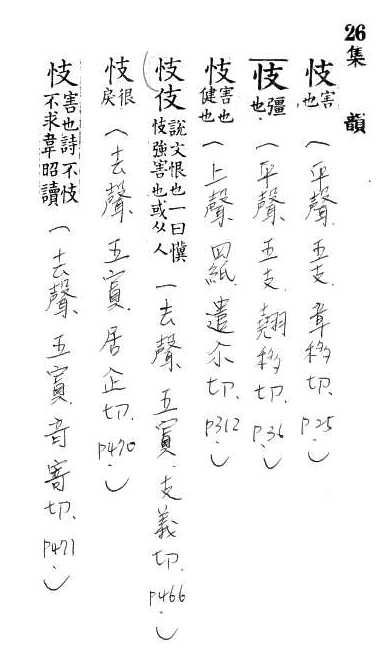 26集韻
忮害也（平聲．五支．章移切．P.25．）
忮彊也．（平聲．五支．翹移切．P.36．）
忮害也健也（上聲．四紙．遣尒切．P312．）
忮伎說文恨也一曰懻忮強害也或从人（去聲．五寘．支義切．P466．）
忮很戾（去聲．五寘．居企切．P470．）
忮害也詩不忮不求韋昭讀（去聲．五寘．音寄切．P471．）